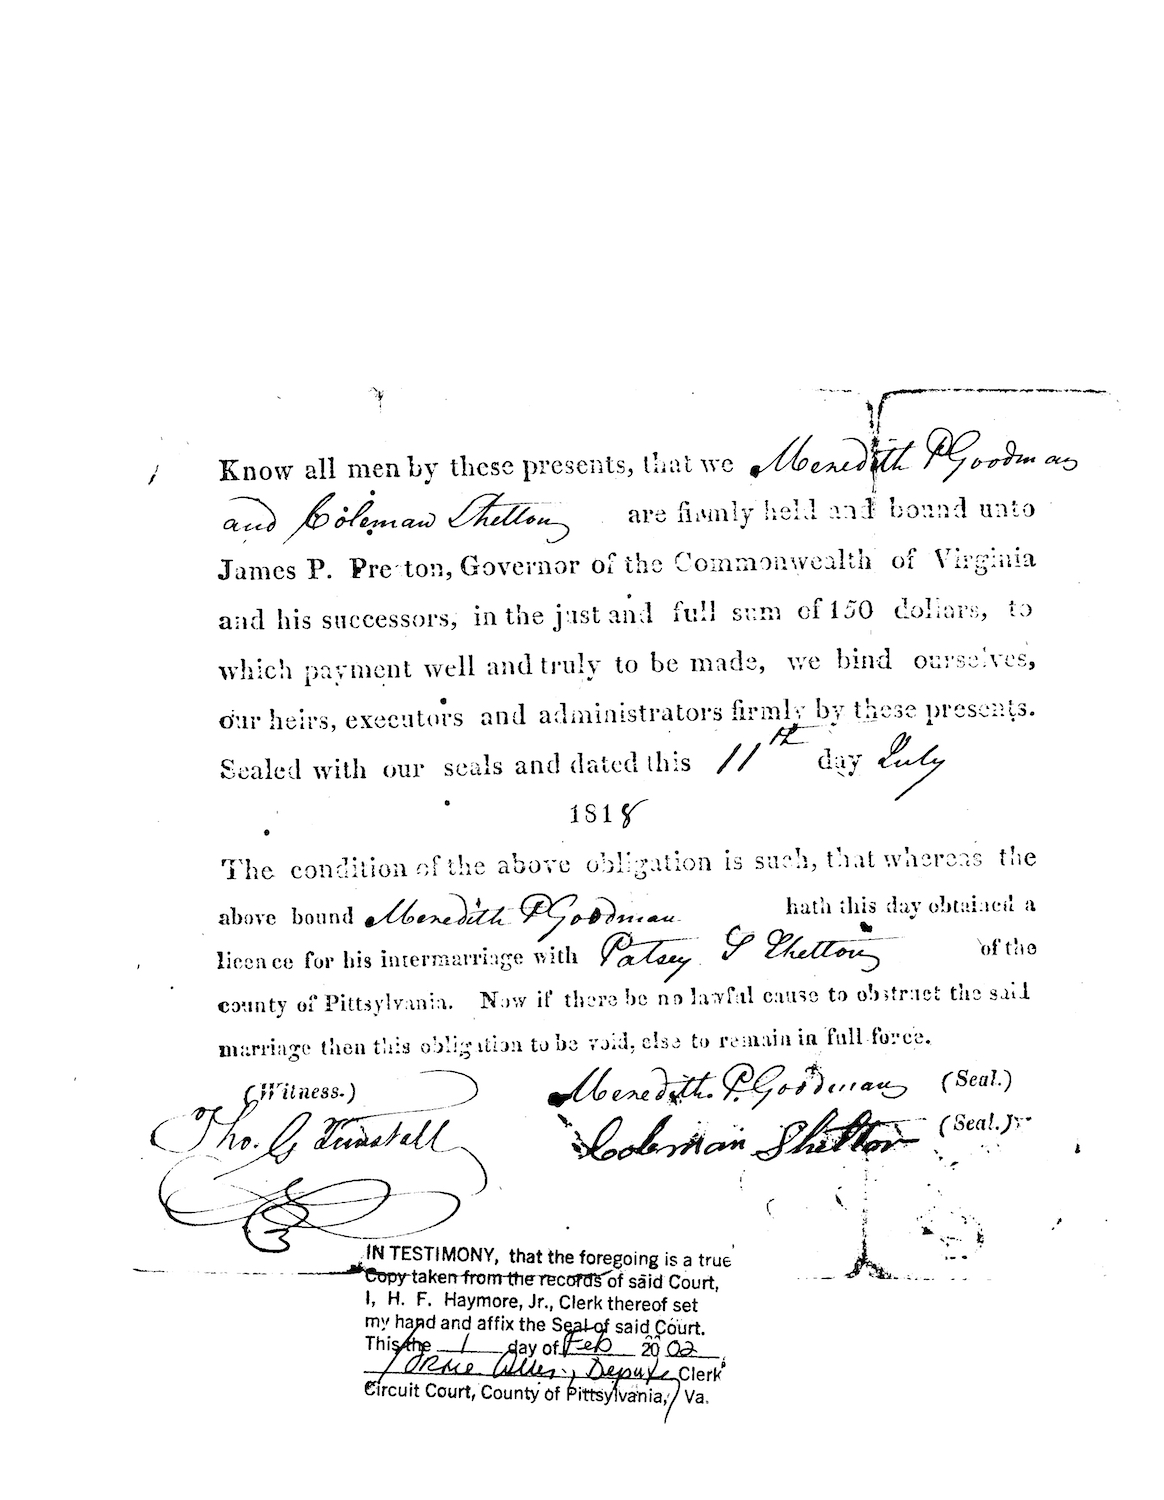 Know all men by these presents, that we Meredith P Goodman
and Coleman Shelton are firmly held and bound unto
James P. Pre ton, Governor of the Commonwealth of Virginia
and his successors, in the just and full sum of 150 dollars, to
which payment well and truly to be made, we bind ourselves,
our heirs, executors and administrators firmly by these presents.
Sealed with our seals and dated this 11th day July
1818
The condition of the above obligation is such, that whereas the
above bound Meredith P Goodman hath this day obtained a
licence for his intermarriage with Patsey S Shelton of the
county of Pittsylvania. Now if there be no lawful cause to obstruct the said
marriage then this obligation to be void, else to remain in full force.
(Witness.) Meredith P. Goodman (Seal.)
Tho. G Tunstall Coleman Shelton (Seal.)
IN TESTIMONY, that the foregoing is a true
Copy taken from the records of said Court,
I, H. F. Haymore, Jr., Clerk thereof set
my hand and affix the Seal of said Court.
This the 1 day of Feb 20 02
Deputy Clerk
Circuit Court, County of Pittsylvania, Va.